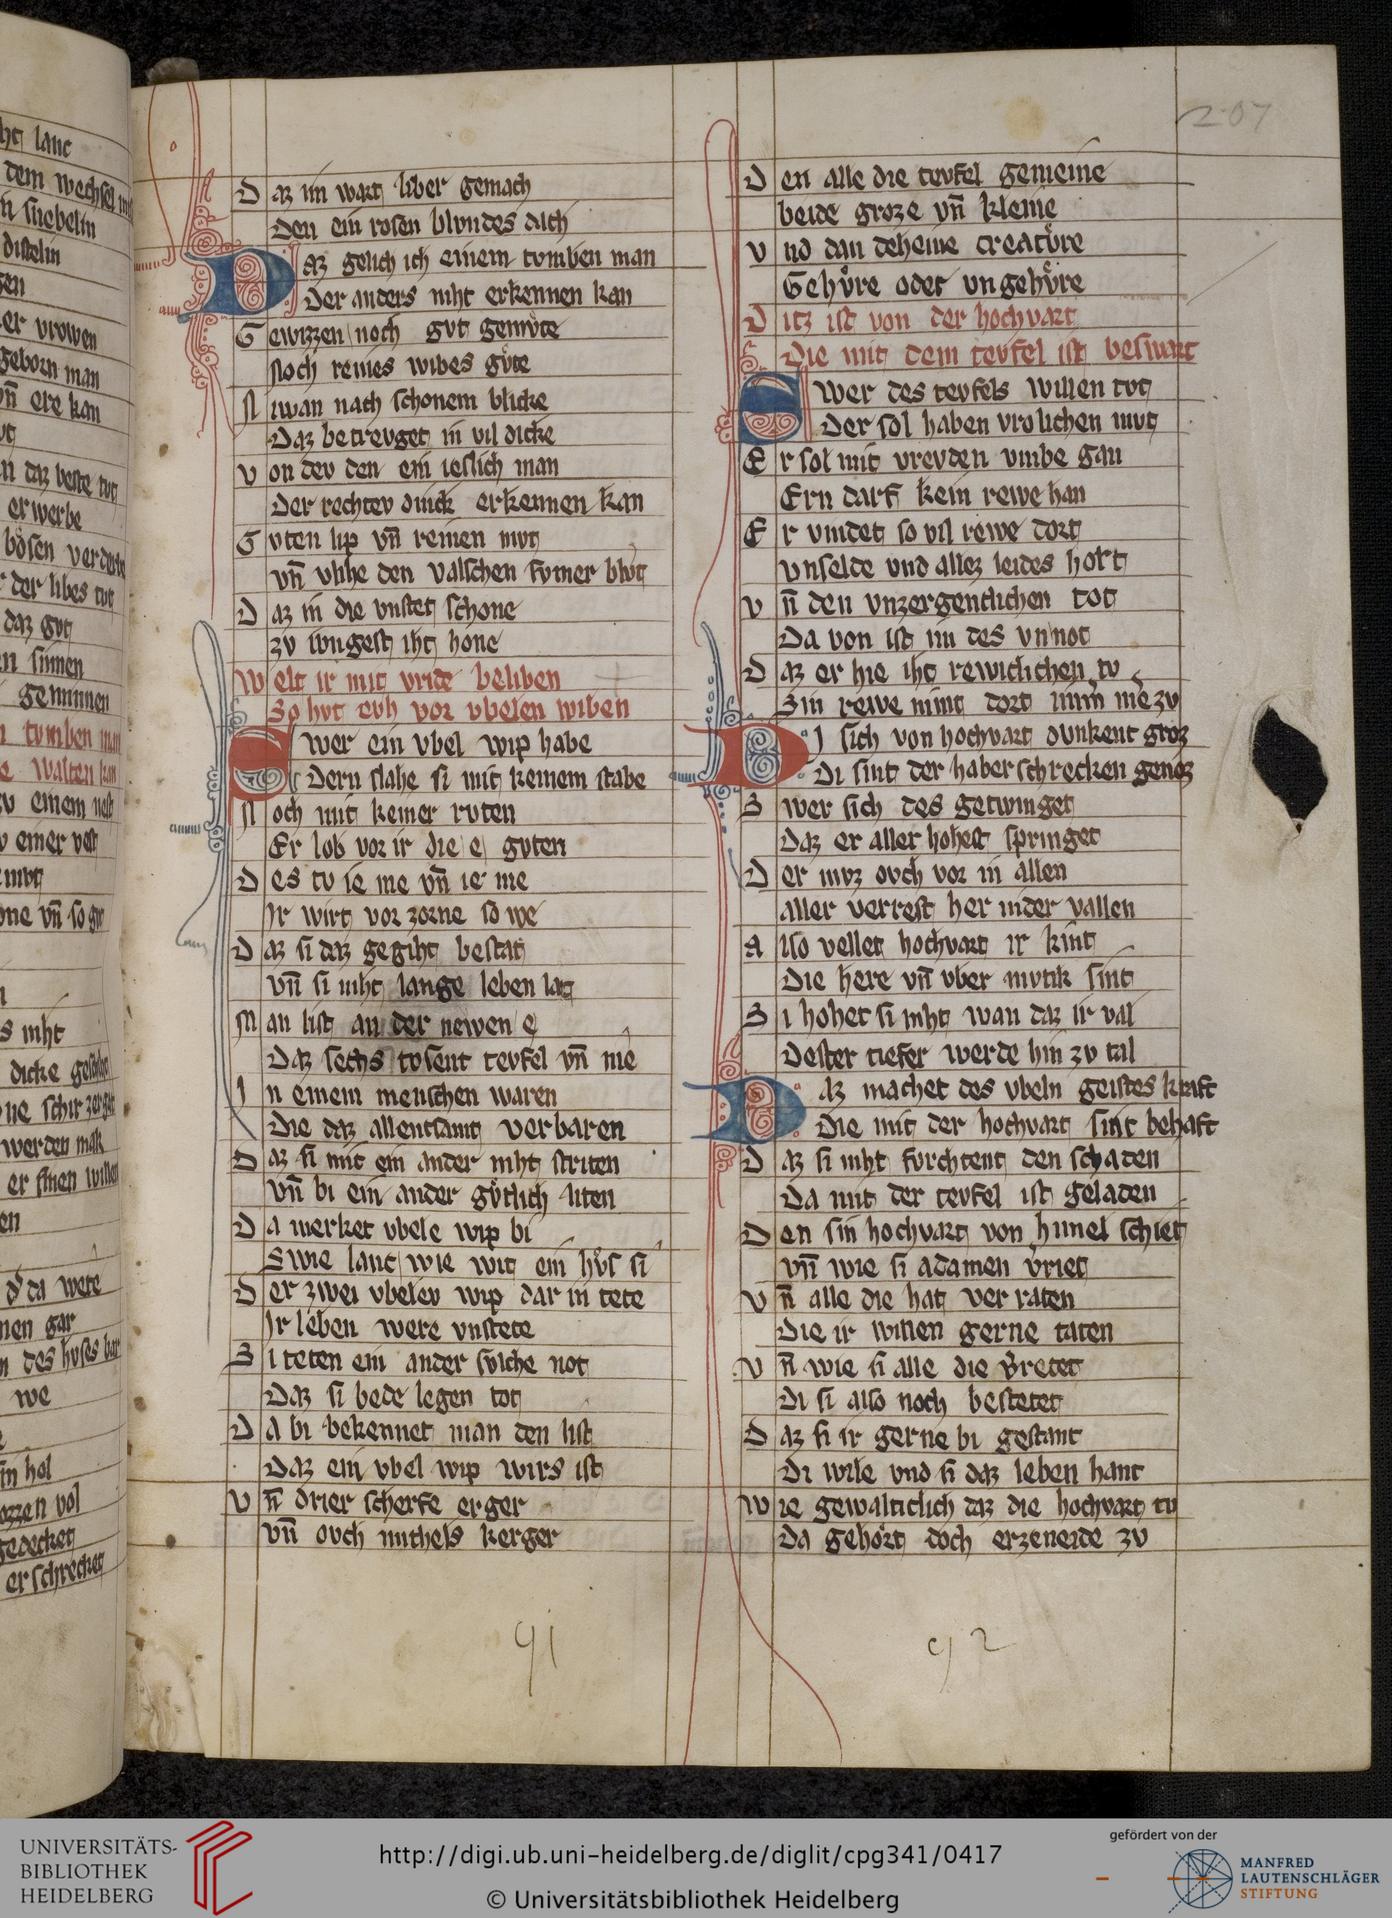 207
Daz im wart liber gemach
Den ein rosen blvndes dach
Daz gelich ich einem tvmben man
Der anders niht erkennen kan
Gewizzen noch gvt gemvͤte
Noch reines wibes gvͤte
Niwan nach schonem blicke
Daz betrevget in vil dicke
Von dev den ein ieslich man
Der rechtev dinck erkennen kan
Gvten lip vn̄ reinen mvt
vn̄ vlihe den valschen svmer blvt
Daz in die vnstet schone
zv ivngest iht hone
Welt ir mit vride beliben
So hvt evh vor vbelen wiben
Swer ein vbel wip habe
Dern slahe si mit keinem stabe
Noch mit keiner rvten
Er lob vor ir die e gvten
Des tv ie me vn̄ ie me
Ir wirt vor zorne so we
Daz si daz gegiht bestat
vn̄ si niht lange leben lat
Man list an der newen e
Daz sechs tvsent tevfel vn̄ me
In einem menschen waren
Die daz allentsamt verbaren
Daz si mit ein ander niht striten
vn̄ bi ein ander gvͤtlich liten
Da merket vbele wip bi
Swie lanc wie wit ein hvͦs si
Der zwei vbelev wip dar in tete
Ir leben were vnstete
Si teten ein ander svlche not
Daz si bede legen tot
Da bi bekennet man den list
Daz ein vbel wip wirs ist
Vn̄ drier scherfe erger
vn̄ ovch michels kerger
91
Den alle die tevfel gemeine
beide groze vn̄ kleine
Vnd dan deheine creatvͤre
Gehvͤre oder vngehvͤre
Ditz ist von der hochvart
Die mit dem tevfel ist beswart
Swer des tevfels willen tvt
Der sol haben vrolichen mvt
Er sol mit vrevden vmbe gan
Ern darf kein rewe han
Er vindet so vil rewe dort
vnselde vnd allez leides hort
Vn̄ den vnzergenclichen tot
Da von ist im des vnnot
Daz er hie iht rewiclichen tv
Sin rewe nimt dort nim̄ me zv
Di sich von hochvart dvnkent groz
Di sint der haberschrecken genoz
Swer sich des getwinget
Daz er aller hohest springet
Der mvz ovch vor in allen
aller verrest her nider vallen
Also vellet hochvart ir kint
Die here vn̄ vber mvtik sint
Si hohet si niht wan daz ir val
Dester tiefer werde hin zv tal
Daz machet des vbeln geistes kraft
Die mit der hochvart sint behaft
Daz si niht fvrchtent den schaden
Da mit der tevfel ist geladen
Den sin hochvart von himel schiet
vn̄ wie si adamen vriet
Vn̄ alle die hat verraten
Die ir willen gerne taten
Vn̄ wie si alle die v̄retet
Di si also noch bestetet
Daz si ir gerne bi gestant
Di wile vnd si daz leben hant
Wie gewalticlich daz die hochvart tv
Da gehort doch erzeneide zv
92
UNIVERSITÄTS-
BIBLIOTHEK
HEIDELBERG
http://digi.ub.uni-heidelberg.de/diglit/cpg341/0417
© Universitätsbibliothek Heidelberg
gefördert von der
MANFRED
LAUTENSCHLÄGER
STIFTUNG